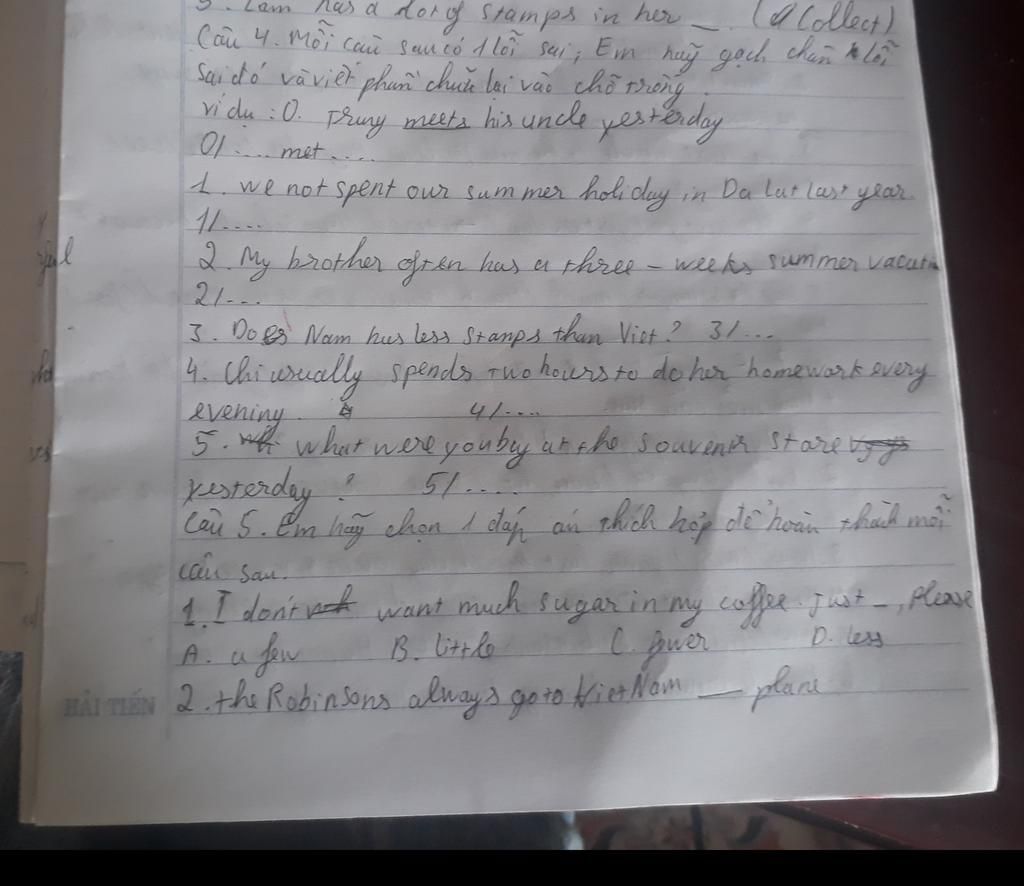 5. Lam has a lot of stamps in her _ . (collect)
Câu 4. Mỗi câu sau có 1 lỗi sai, Em hãy gạch chân lỗi
sai đó và viết phần chữa lại vào chỗ trống.
ví dụ : 0. Trung meets his uncle yesterday
0/.... met ....
1. we not spent our summer holiday in Da Lat last year.
1/....
2. My brother often has a three - weeks summer vacation
2/...
3. Does Nam has less stamps than Viet? 3/...
4. Chi usually spends two hours to do her homework every
evening. 4/....
5. what were you buy at the souvenir store
yesterday? 5/....
Câu 5. Em hãy chọn 1 đáp án thích hợp để hoàn thành mỗi
câu sau.
1. I don't want much sugar in my coffee. Just _, please
A. a few B. little C. fewer D. less
HẢI TIẾN 2. the Robinsons always go to Viet Nam __ plane